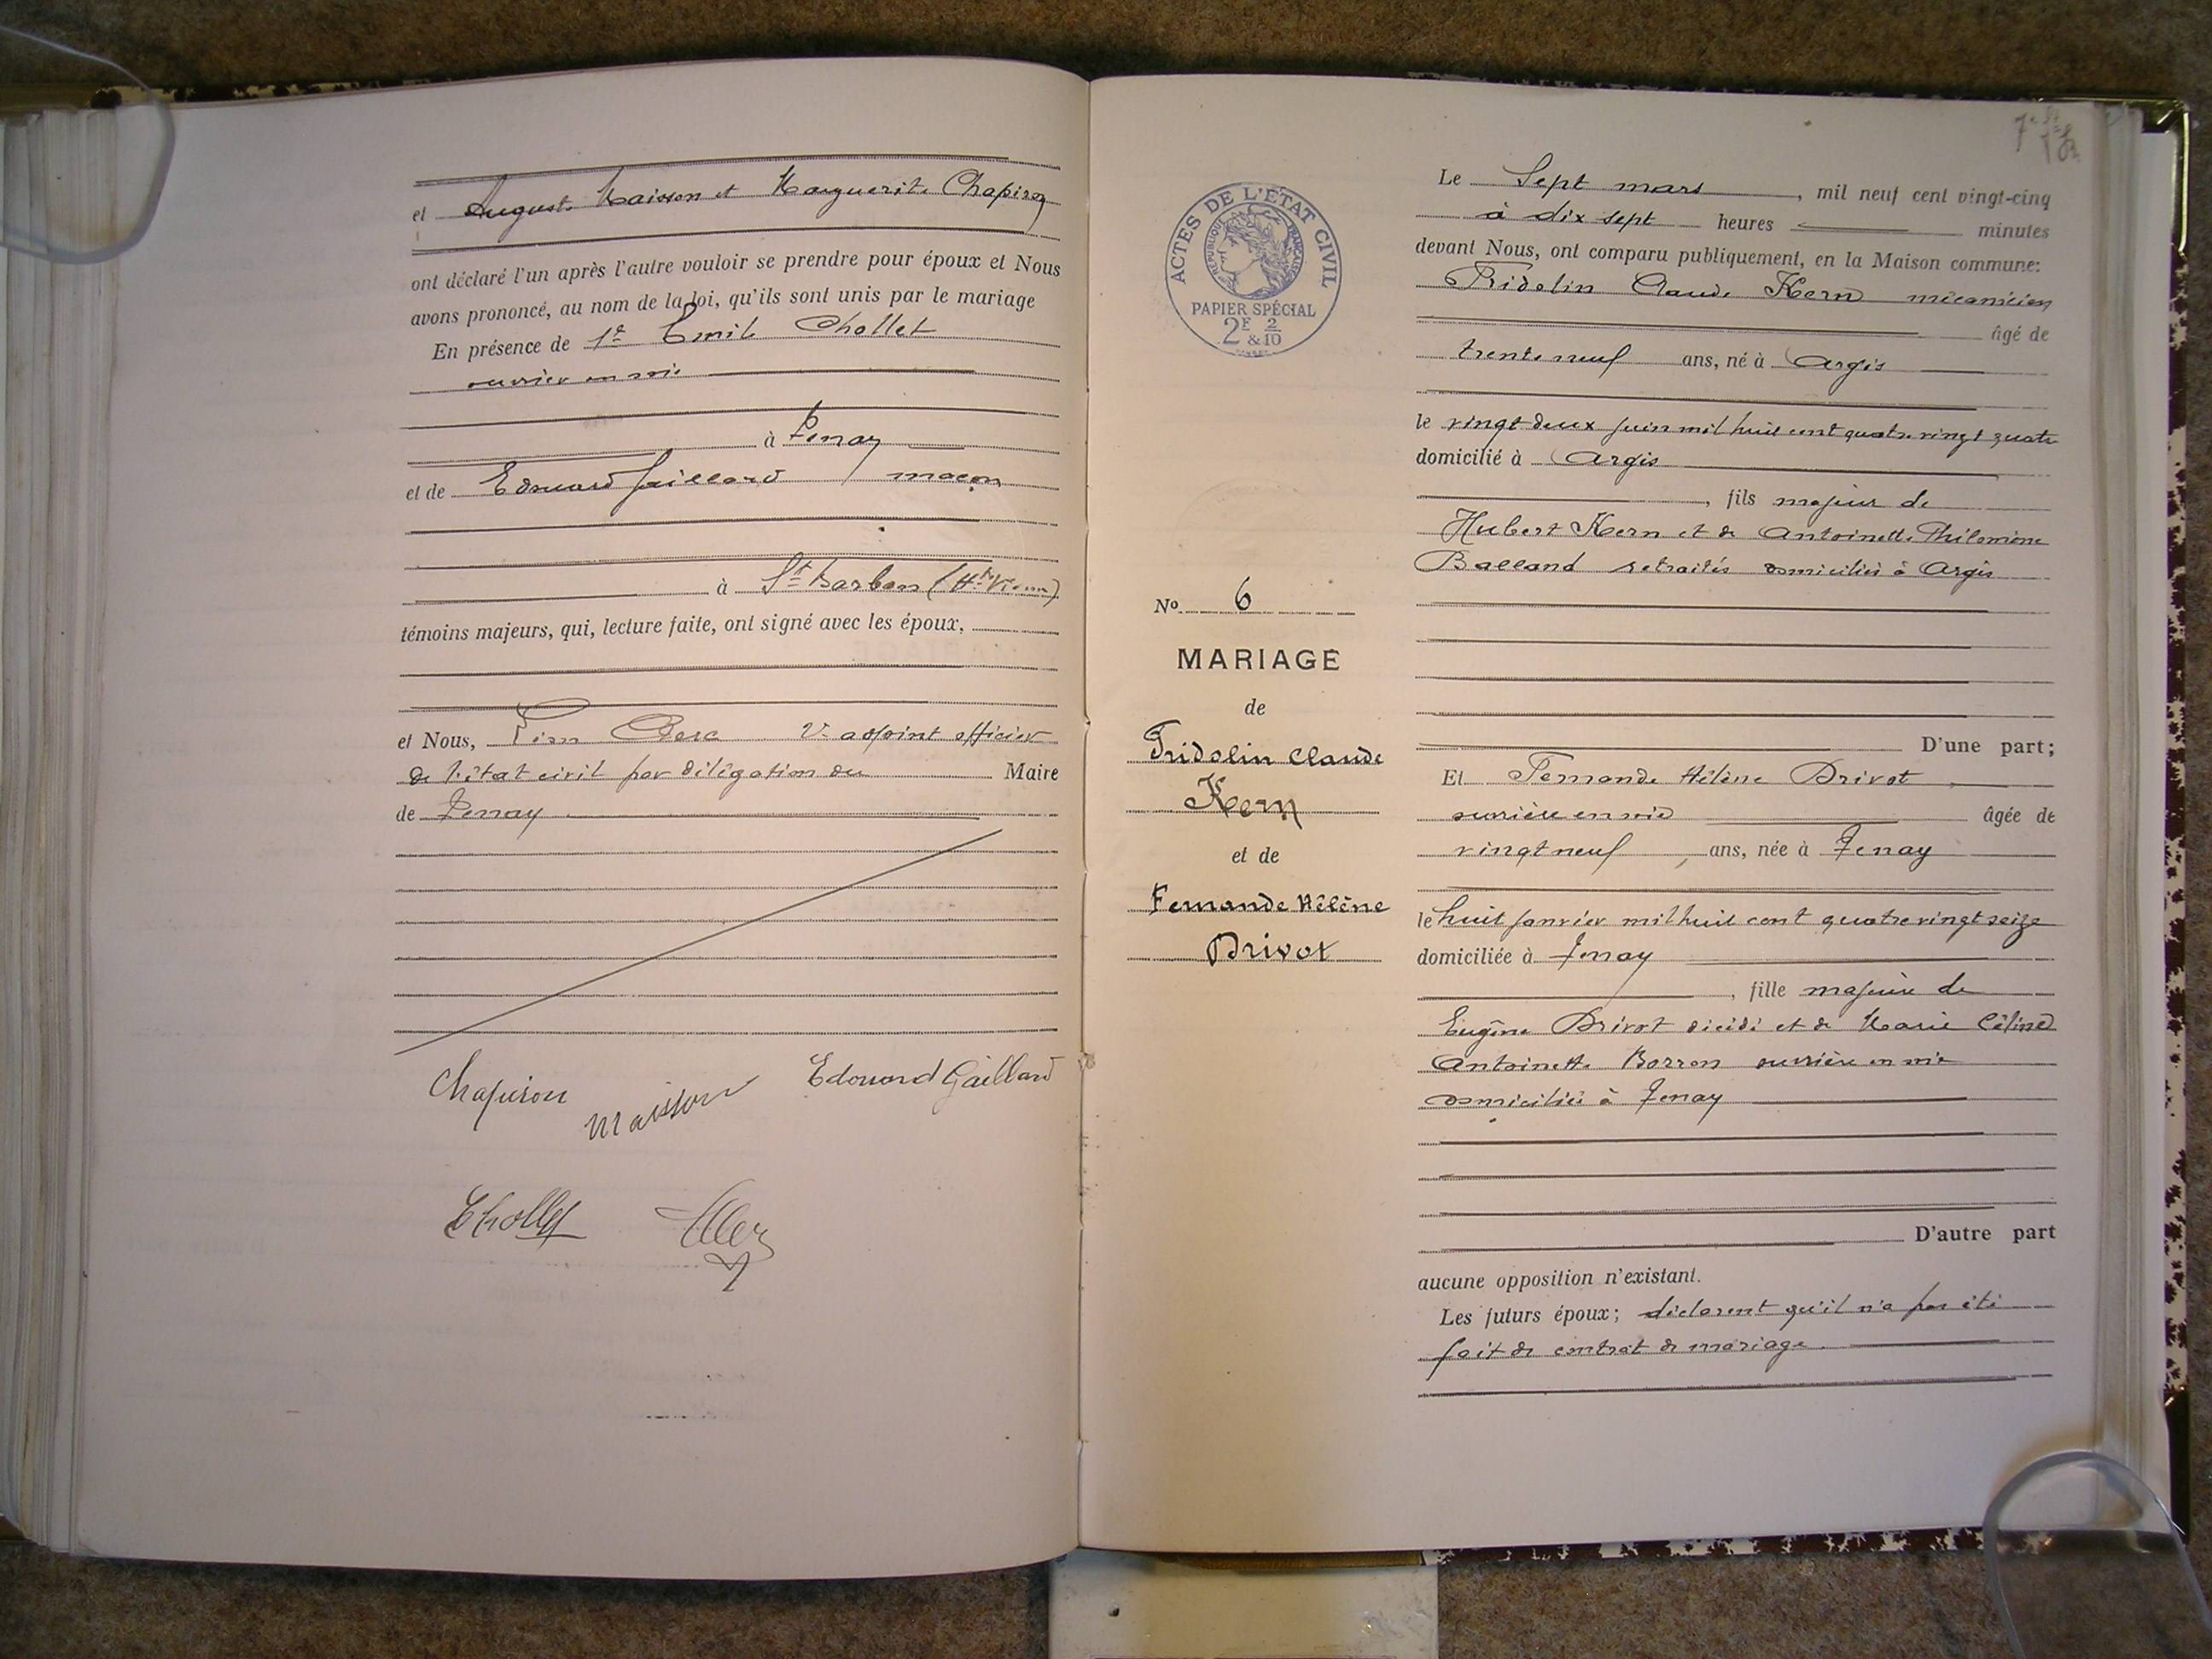 et August. Maisson et Marguerite Chapiron
ont déclaré l'un après l'autre vouloir se prendre pour époux et Nous
avons prononcé, au nom de la loi, qu'ils sont unis par le mariage
En présence de 1º Emile Chollet
ouvrier en soie
à Tenay
et de Edouard Gaillard maçon
à St Barban (Hte Vienne)
témoins majeurs, qui, lecture faite, ont signé avec les époux,
et Nous, adjoint officier
de l'état civil par délégation du Maire
de Tenay
Chapiron
Maisson
Edouard Gaillard
EChollet
ACTES DE L'ÉTAT CIVIL
RÉPUBLIQUE FRANÇAISE
PAPIER SPÉCIAL
2F & 2/10
No 6
MARIAGE
de
Fridolin Claude
Kern
et de
Fernande Hélène
Drivot
Le Sept mars, mil neuf cent vingt-cinq
à dix sept heures minutes
devant Nous, ont comparu publiquement, en la Maison commune:
Fridolin Claude Kern mécanicien
âgé de
trente neuf ans, né à Argis
le vingt deux juin mil huit cent quatre vingt quatre
domicilié à Argis
, fils majeur de
Hubert Kern et de Antoinette Philomène
Balland retraités domiciliés à Argis
D'une part;
Et Fernande Hélène Drivot
ouvrière en soie âgée de
vingt neuf ans, née à Tenay
le huit janvier mil huit cent quatre vingt seize
domiciliée à Tenay
, fille majeure de
Eugène Drivot décédé et de Marie Céline
Antoinette Borron ouvrière en soie
domiciliée à Tenay
D'autre part
aucune opposition n'existant.
Les futurs époux; déclarent qu'il n'a pas été
fait de contrat de mariage.